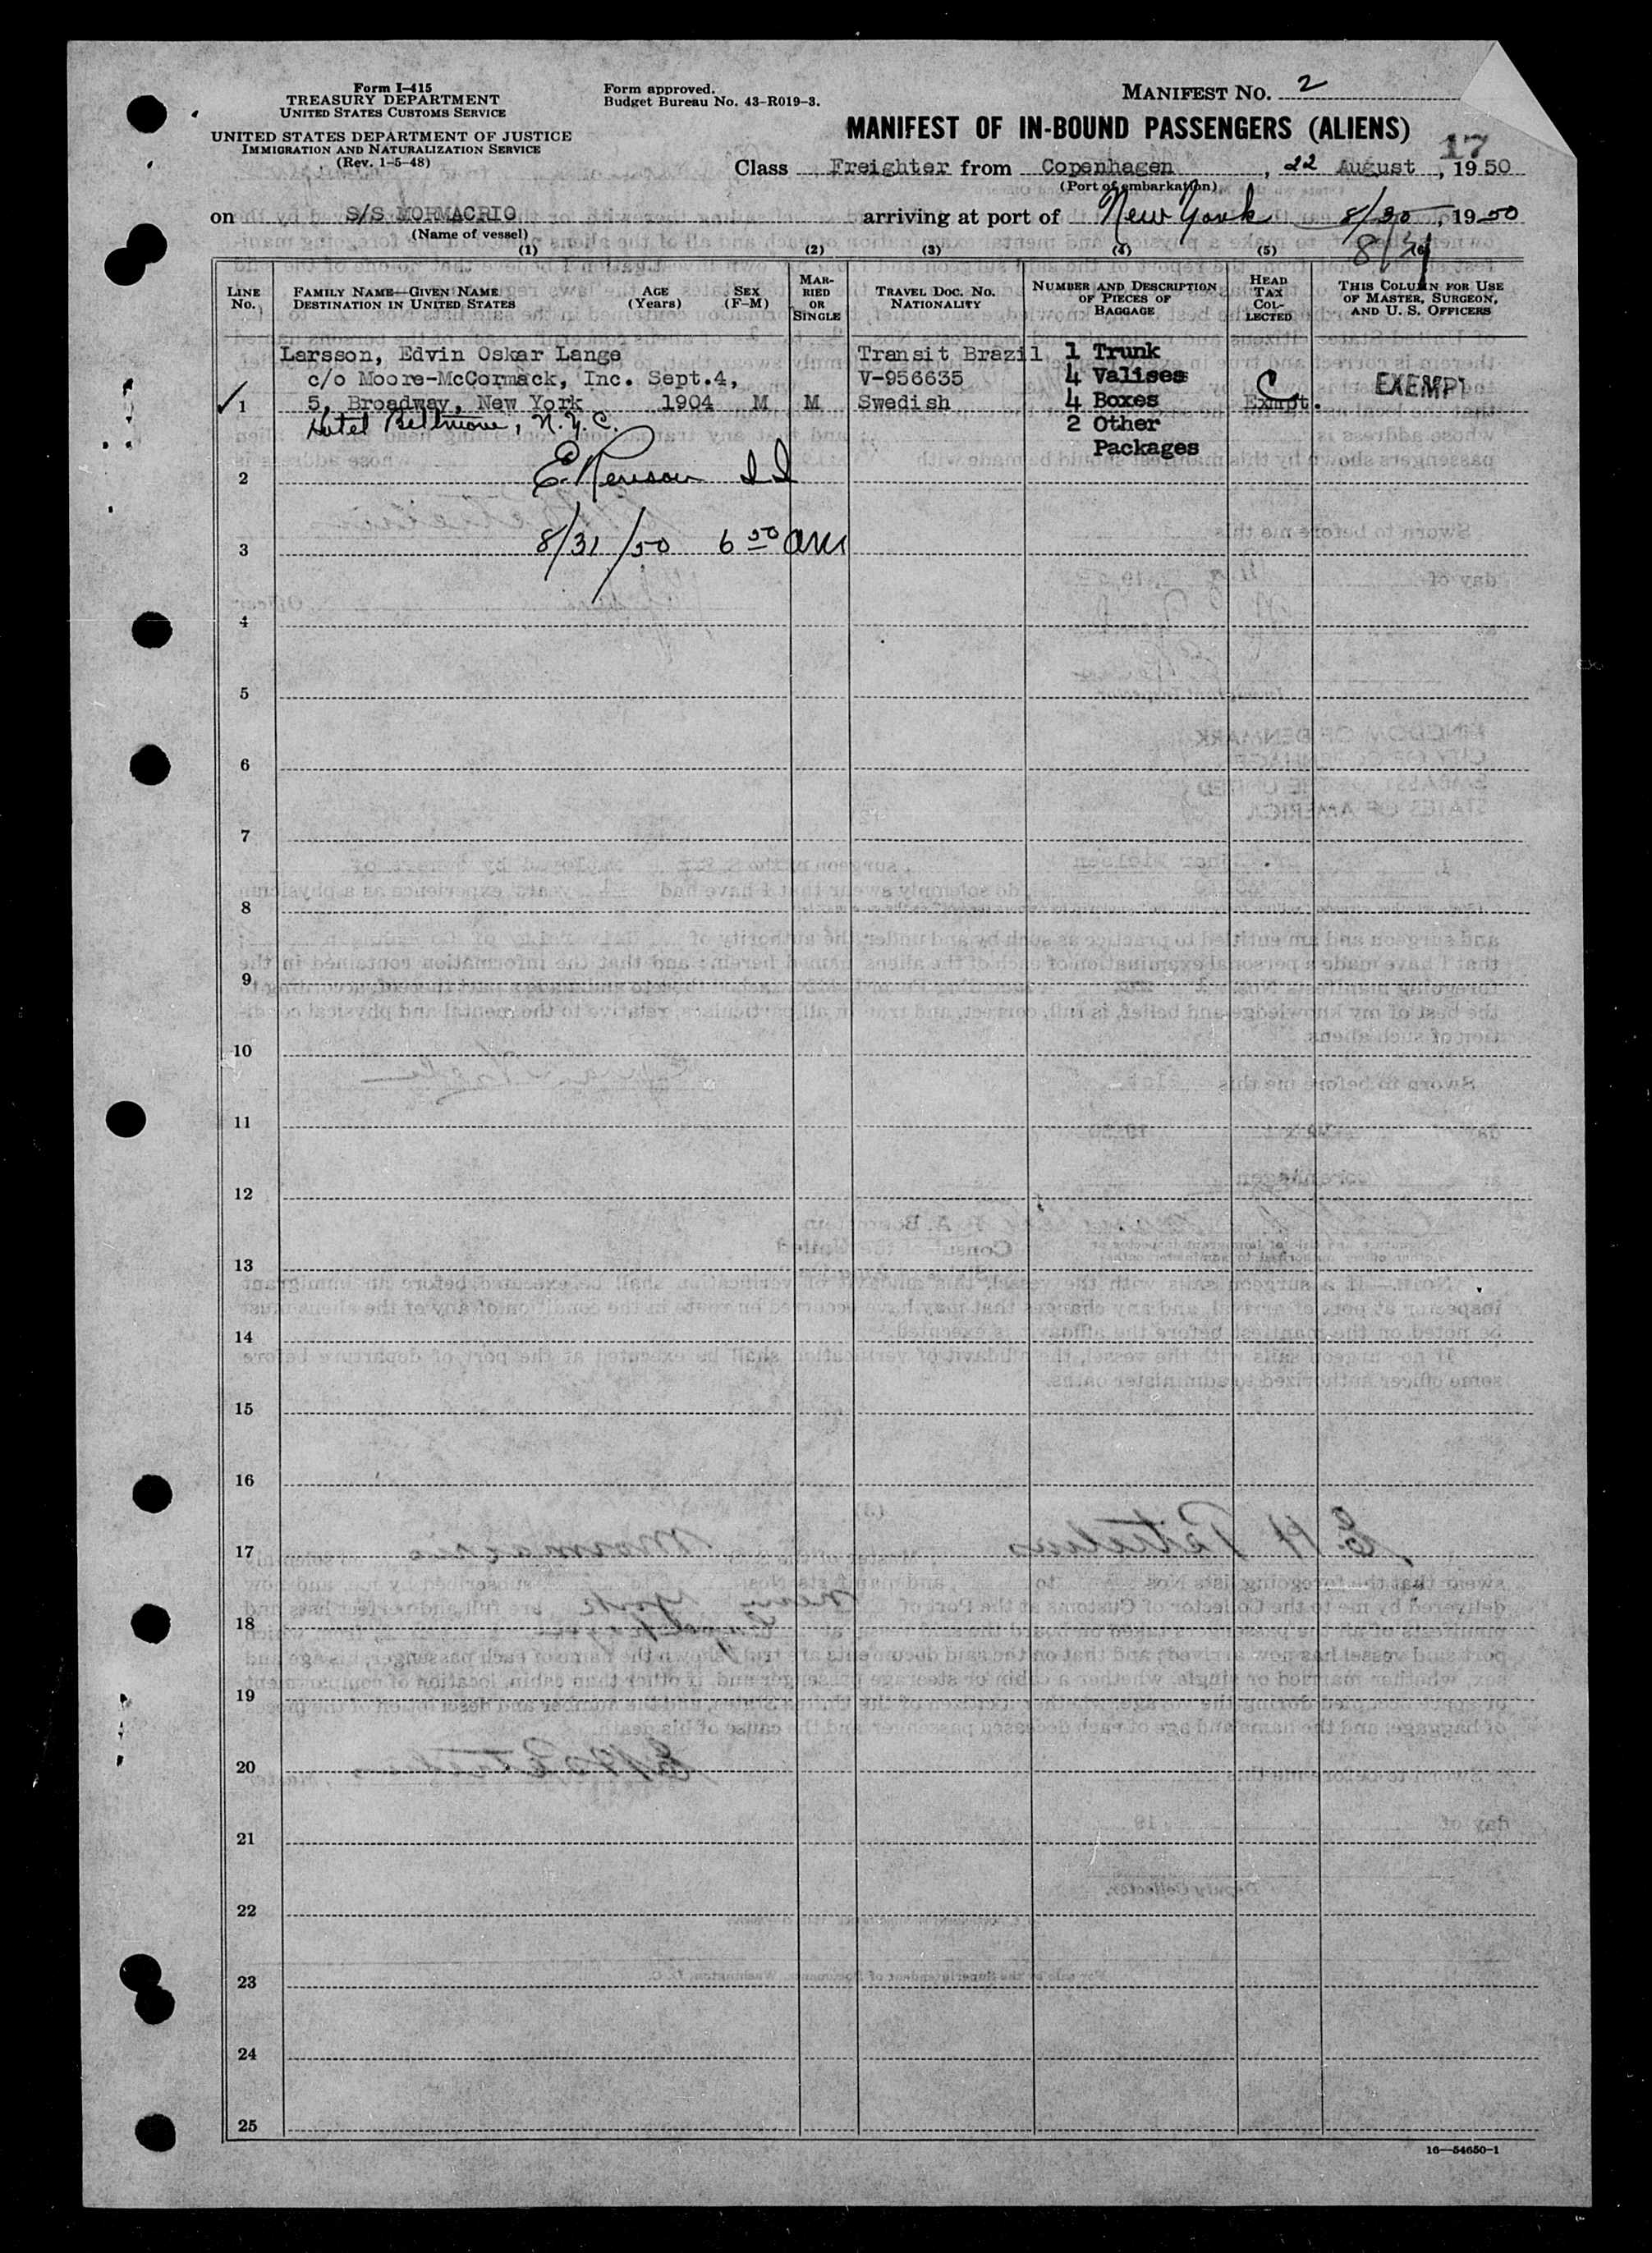 Form I-415
TREASURY DEPARTMENT
UNITED STATES CUSTOMS SERVICE
UNITED STATES DEPARTMENT OF JUSTICE
IMMIGRATION AND NATURALIZATION SERVICE
(Rev. 1-5-48)
Form approved.
Budget Bureau No. 43-R019-3.
MANIFEST NO. 2
MANIFEST OF IN-BOUND PASSENGERS (ALIENS)
17
Class Freighter from Copenhagen, 22 August, 1950
(Port of embarkation)
on S/S MORMACRIO arriving at port of New York 8/30, 1950
(Name of vessel)
8/31
(1) (2) (3) (4) (5) (6)
LINE No. FAMILY NAME—GIVEN NAME DESTINATION IN UNITED STATES AGE (Years) SEX (F-M) MARRIED OR SINGLE TRAVEL DOC. NO. NATIONALITY NUMBER AND DESCRIPTION OF PIECES OF BAGGAGE HEAD TAX COLLECTED THIS COLUMN FOR USE OF MASTER, SURGEON, AND U. S. OFFICERS
Larsson, Edvin Oskar Lange Transit Brazil 1 Trunk
c/o Moore-McCormack, Inc. Sept.4, V-956635 4 Valises C EXEMPT
1 5, Broadway, New York 1904 M M Swedish 4 Boxes Exmpt.
Hotel Belmore, N.Y.C. 2 Other
Packages
2 E. II
3 8/31/50 6 50 AM
4
5
6
7
8
9
10
11
12
13
14
15
16
17
18
19
20
21
22
23
24
25
16—54650-1